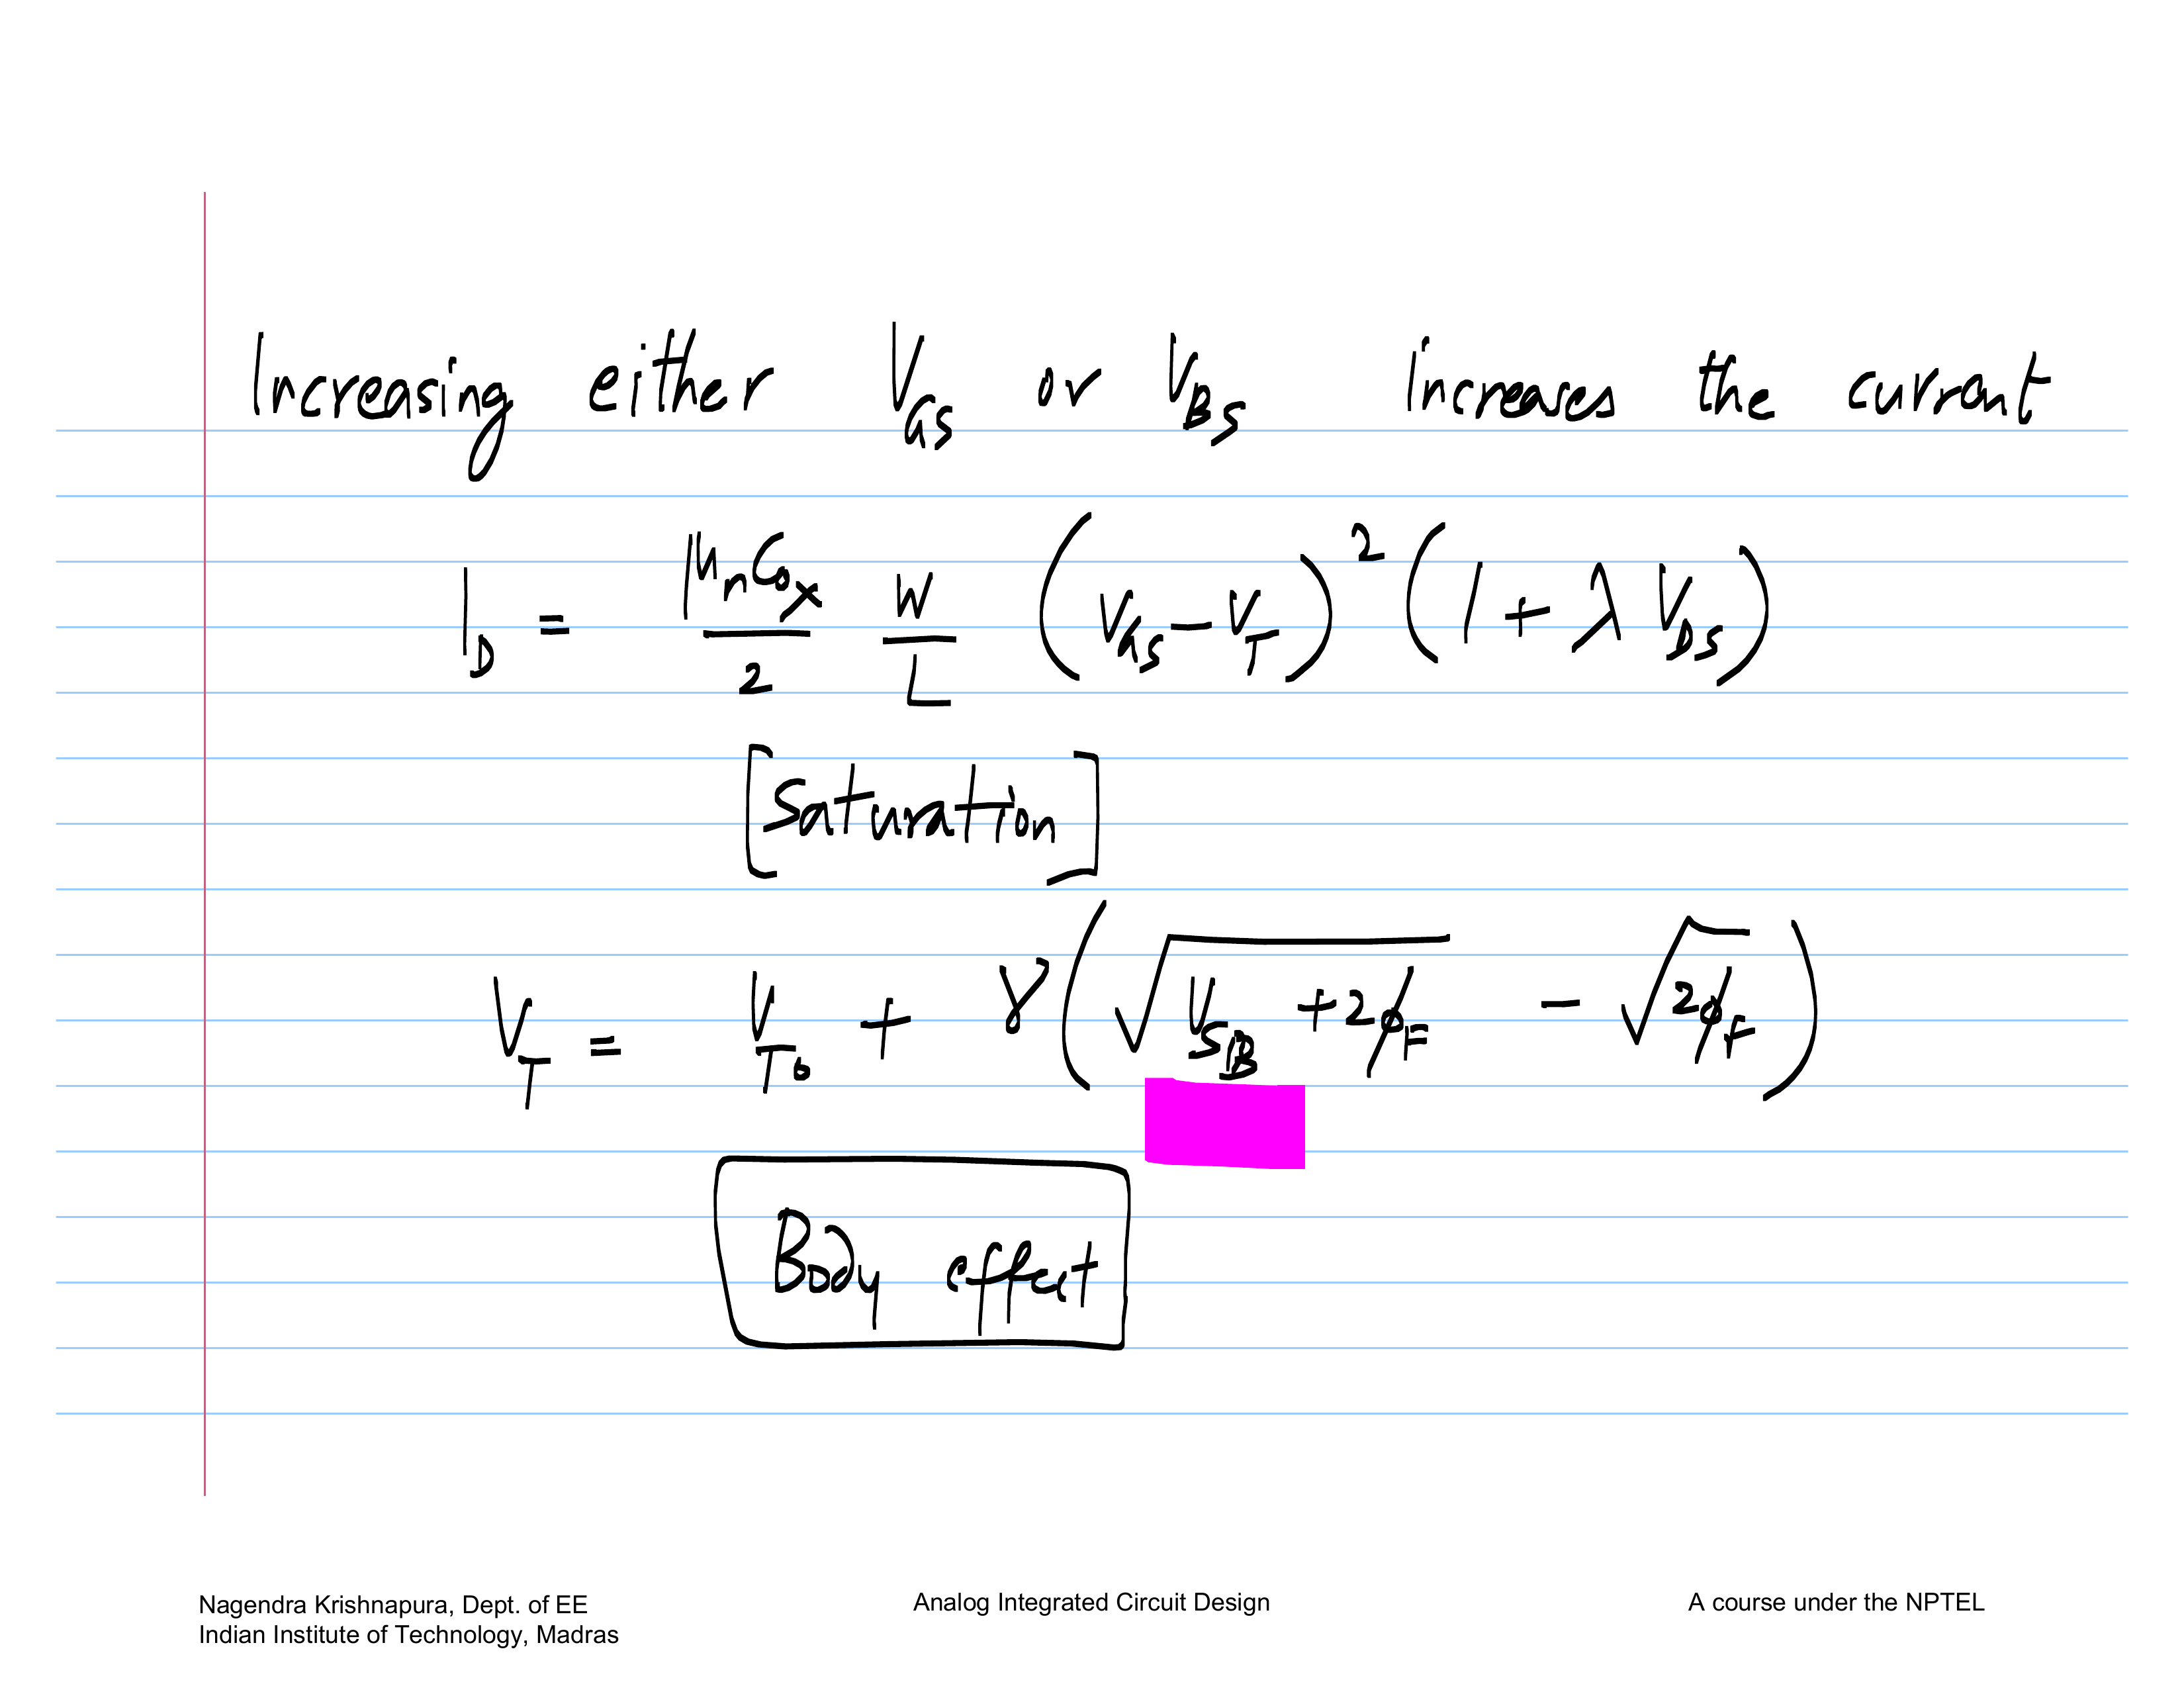 Increasing either V_GS or V_DS increases the current
I_D = μ_n C_ox / 2 W / L (V_GS − V_T)^2 (1 + λ V_DS)
[Saturation]
V_T = V_T0 + γ(√(V_SB + 2φ_F) − √(2φ_F))
Body effect
Nagendra Krishnapura, Dept. of EE
Indian Institute of Technology, Madras
Analog Integrated Circuit Design
A course under the NPTEL